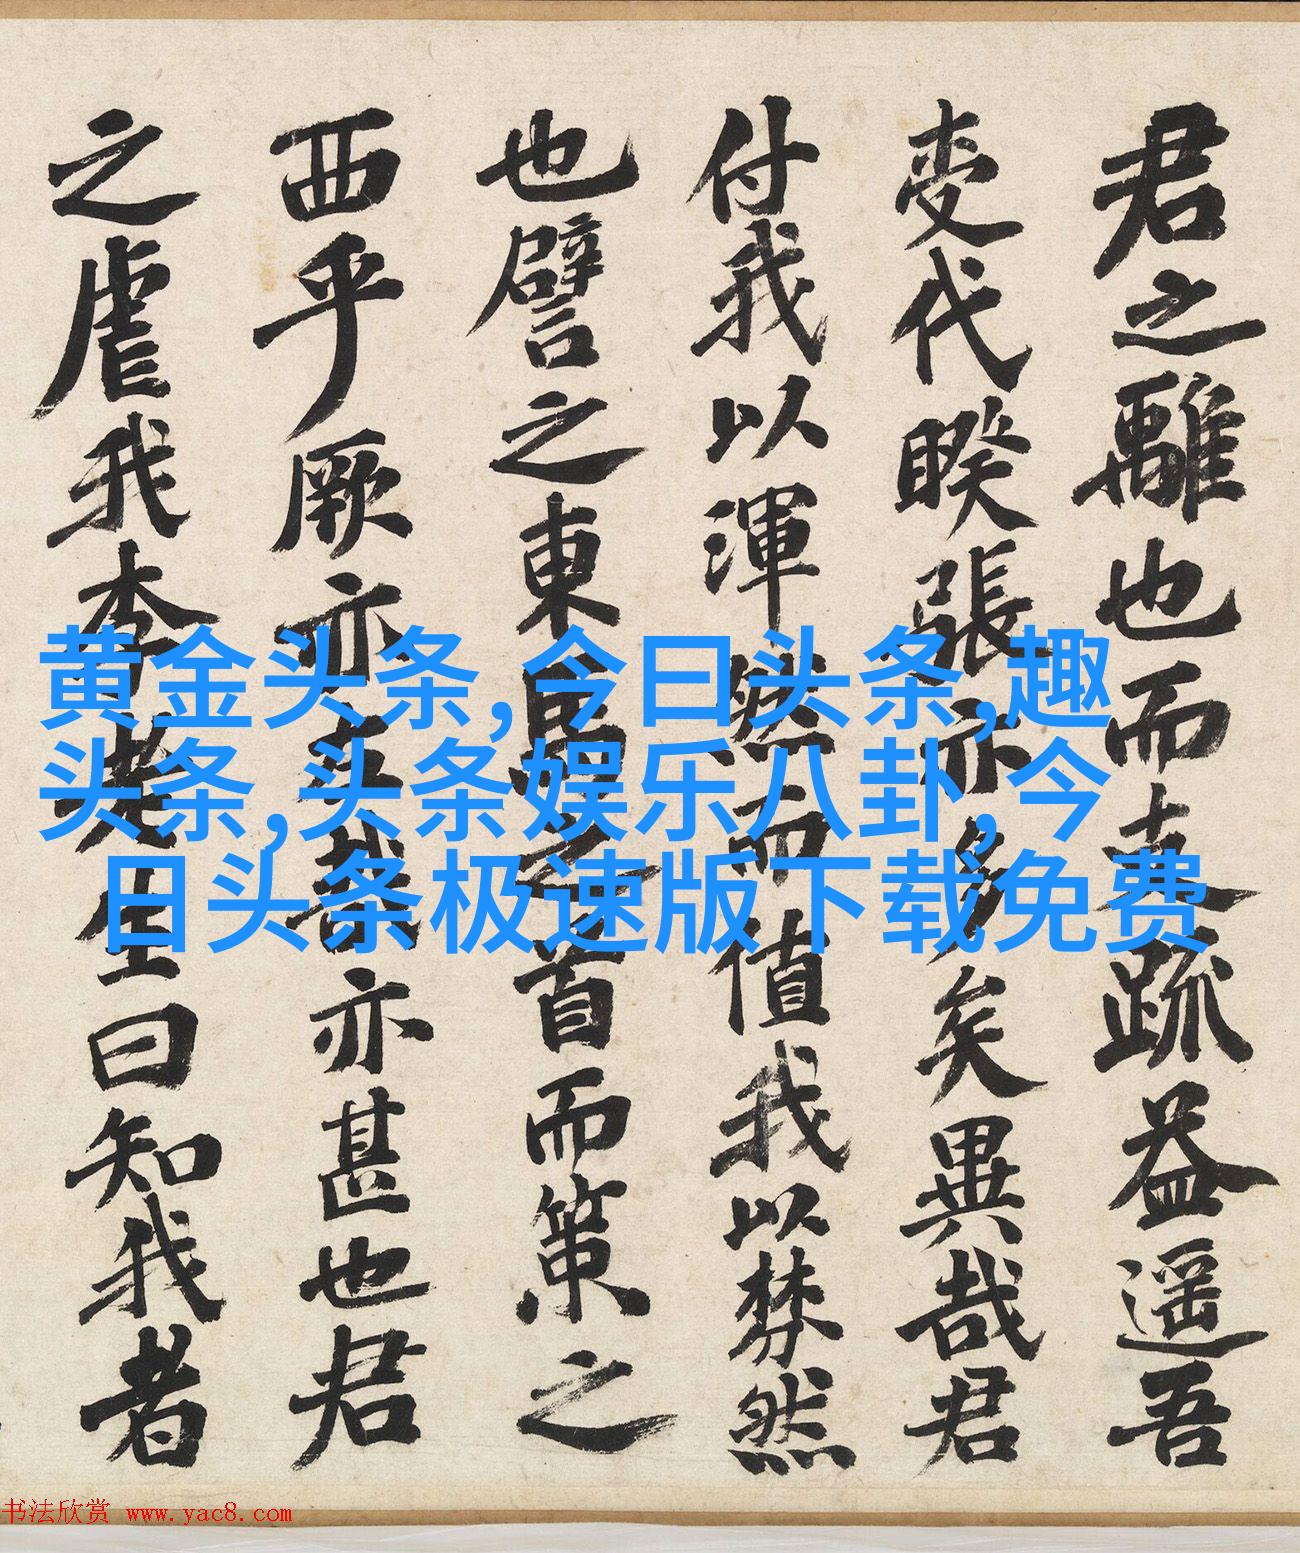 君之離也而疏益遥吾
代睽張亦多矣異哉君
付我以渾然而值我以棼然
也譬之東馬之首而策之
西乎厥亦左哉亦甚也君
之虐我李老生曰知我者
黄金头条,今曰头条,趣
头条,头条娱乐八卦,今
日头条极速版下载免费
书法欣赏 www.yac8.com